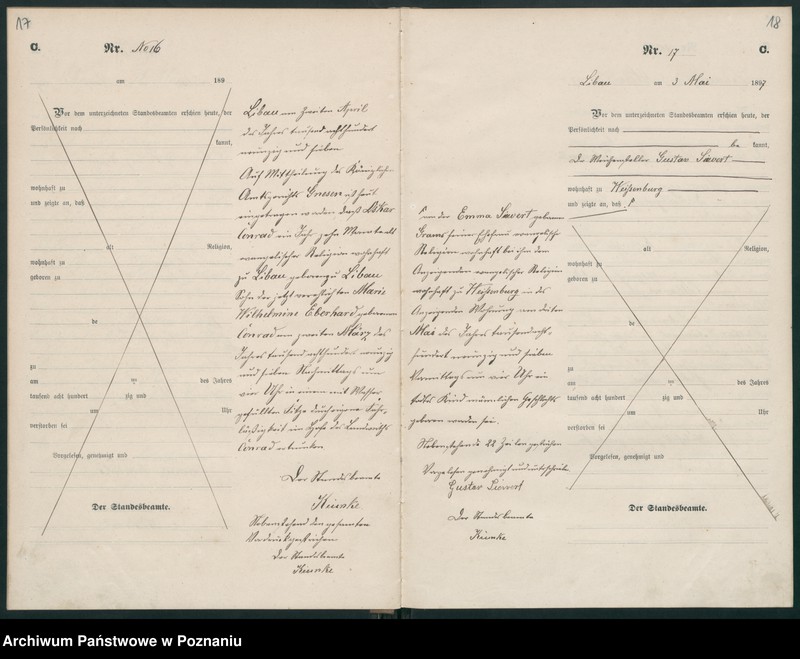 17
C. Nr. No 16
am 189
Vor dem unterzeichneten Standesbeamten erschien heute, der
Persönlichkeit nach
kannt,
wohnhaft zu
und zeigte an, daß
alt Religion,
wohnhaft zu
geboren zu
de
zu
am ten des Jahres
tausend acht hundert zig und
um Uhr
verstorben sei
Vorgelesen, genehmigt und
Der Standesbeamte.
Libau am zweiten April
des Jahres tausend achthundert
neunzig und sieben
Auf Mittheilung des Königlichen
Amtsgerichts Gnesen ist heut
eingetragen worden daß Oskar
Conrad ein Jahr zehn Monate alt
evangelischer Religion wohnhaft
zu Libau geboren zu Libau
Sohn der jetzt verehelichten Marie
Wilhelmine Eberhard geborenen
Conrad am zweiten März des
Jahres tausend achthundert neunzig
und sieben Nachmittags um
vier Uhr in einem mit Wasser
gefüllten
Conrad ertrunken
Der Standesbeamte
Nebenstehend den gesamten
Vordruck gestrichen
Der Standesbeamte
18
Nr. 17 C.
Libau am 3 Mai 1897
Vor dem unterzeichneten Standesbeamten erschien heute, der
Persönlichkeit nach
be kannt,
Der Weichensteller Gustav Sievert
wohnhaft zu Weißenburg
und zeigte an, daß
von der Emma Sievert geborenen
evangelischer
Religion wohnhaft bei ihm dem
Anzeigenden evangelischer Religion
wohnhaft zu Weißenburg in des
Anzeigenden Wohnung am dritten
Mai des Jahres tausend acht-
hundert neunzig und sieben
Vormittags um vier Uhr ein
todtes Kind männlichen Geschlechts
geboren worden sei.
Nebenstehende 22 Zeilen gestrichen
Vorgelesen genehmigt und unterschrieben
Gustav Sievert
Der Standesbeamte
alt Religion,
wohnhaft zu
geboren zu
de
zu
am ten des Jahres
tausend acht hundert zig und
um Uhr
verstorben sei
Vorgelesen, genehmigt und
Der Standesbeamte.
Archiwum Państwowe w Poznaniu